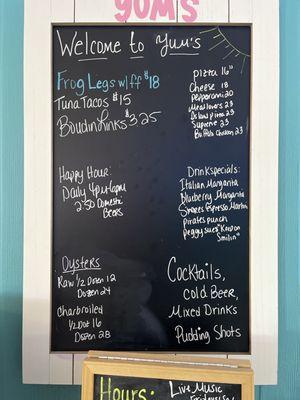 YUM'S
Welcome to Yum's
Frog Legs w/ff $18
Tuna Tacos $15
Boudin Links $3.25
pizza 16"
Cheese 18
pepperoni 20
Meat lovers 23
Deluxe pizza 23
Supreme 23
Buffalo Chicken 23
Happy Hour:
Daily 4pm-6pm
2.50 Domestic
Beers
Drink specials:
Italian Margarita
Blueberry Margarita
Espresso Martini
pirates punch
Peggy Sue's "Keep on
Smilin"
Oysters
Raw 1/2 Dozen 12
Dozen 24
Charbroiled
1/2 Doz 16
Dozen 28
Cocktails,
Cold Beer,
Mixed Drinks
Pudding Shots
Hours:
Live Music